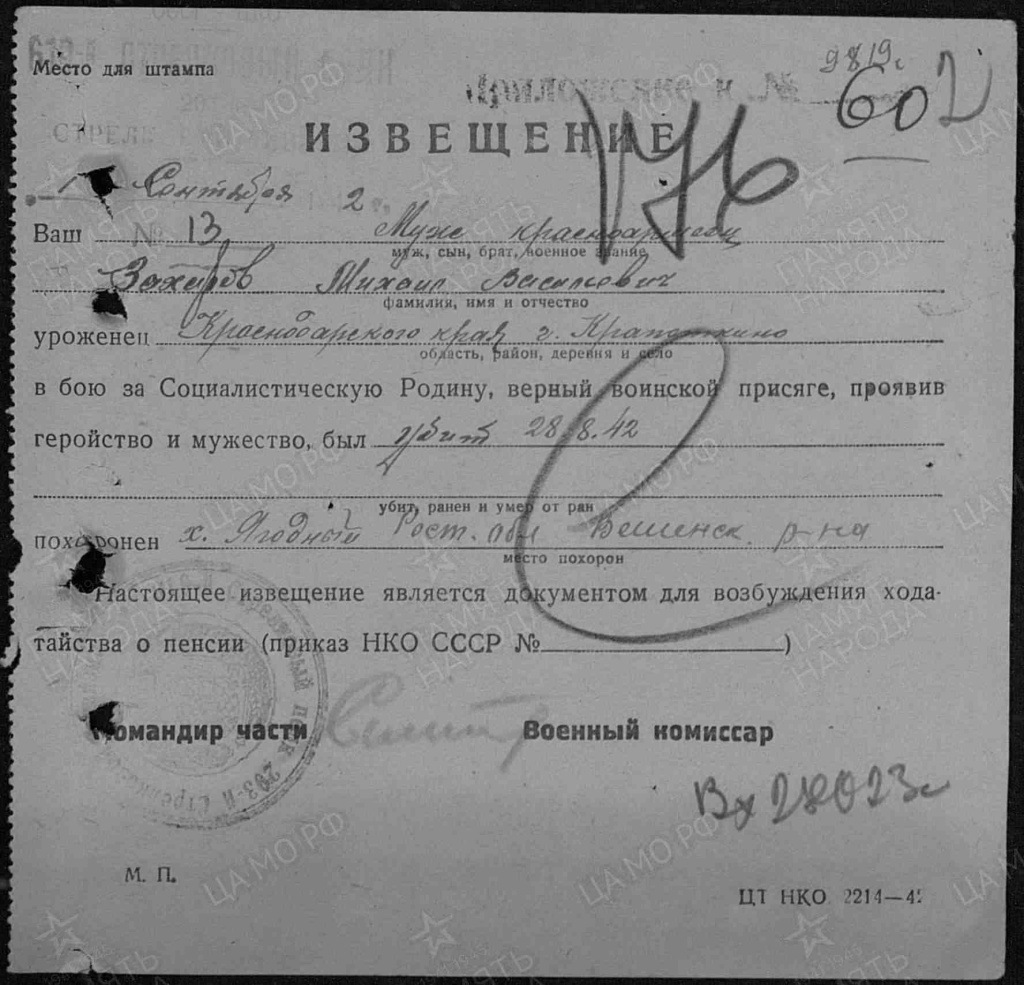 Место для штампа
Приложение к №
9819
602
ИЗВЕЩЕНИЕ
176
1 Сентября 2 г.
Ваш № 13 Муж красноармеец
муж, сын, брат, военное звание
Захаров Михаил Васильевич
фамилия, имя и отчество
уроженец Краснодарского края г. Крапоткино
область, район, деревня и село
в бою за Социалистическую Родину, верный воинской присяге, проявив
геройство и мужество, был убит 28.8.42
убит, ранен и умер от ран
похоронен х. Ягодный Рост. обл Вешенск. р-на
место похорон
Настоящее извещение является документом для возбуждения хода-
тайства о пенсии (приказ НКО СССР № )
Командир части Военный комиссар
Вх 28023
М. П.
ЦТ НКО 2214—42